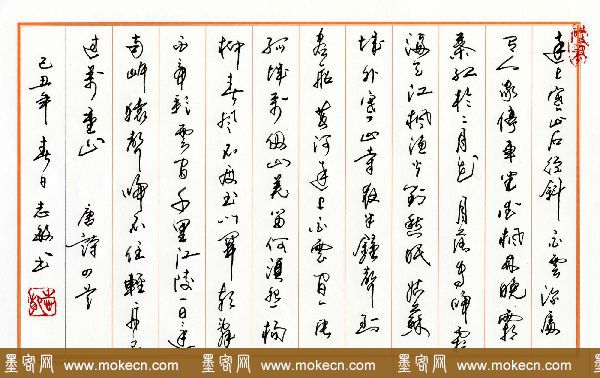 远上寒山石径斜 白云深處
有人家 停车坐爱枫林晚 霜
葉红於二月花 月落乌啼霜
满天 江枫渔火对愁眠 姑蘇
城外寒山寺 夜半鐘聲到
客船 黄河远上白云间 一片
孤城万仞山 羌笛何须怨杨
柳 春风不度玉门关 朝辞
白帝彩云间 千里江陵一日还
两岸猿聲啼不住 輕舟已
过萬重山 唐詩四首
己丑年春日 志敏书
墨客网 www.mokecn.com 墨客网 www.mokecn.com 墨客网 www.mokecn.com